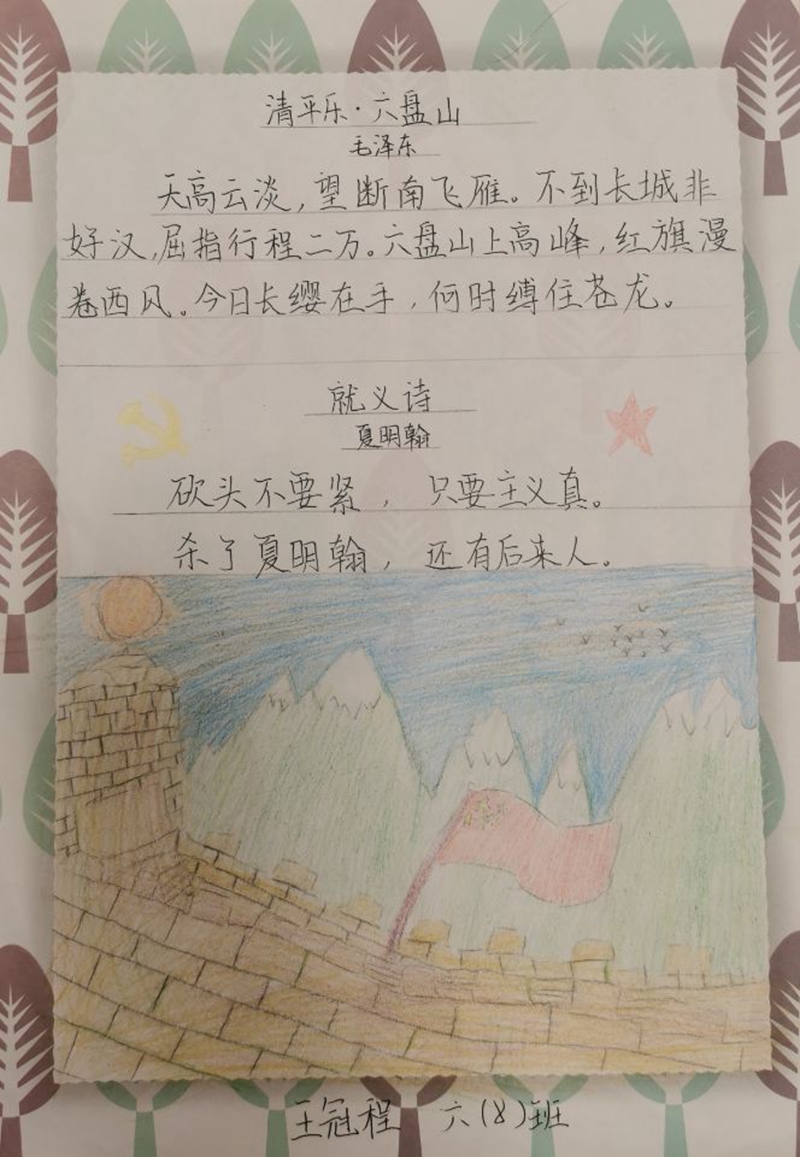 清平乐·六盘山
毛泽东
天高云淡，望断南飞雁。不到长城非
好汉，屈指行程二万。六盘山上高峰，红旗漫
卷西风。今日长缨在手，何时缚住苍龙。
就义诗
夏明翰
砍头不要紧，只要主义真。
杀了夏明翰，还有后来人。
王冠程 六(8)班